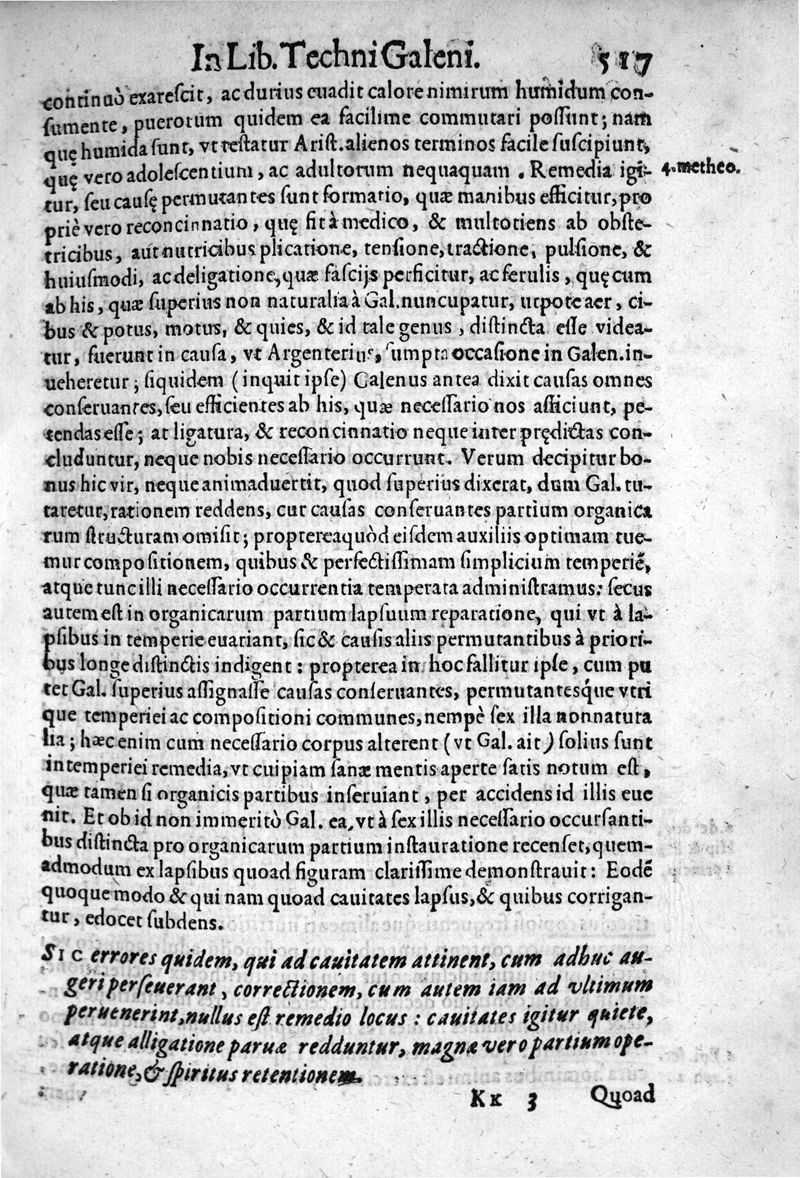 In Lib. Techni Galeni. 517
continuò exarescit, ac durius euadit calore nimirum humidum con-
sumente, puerorum quidem ea facilime commutari possunt; nam
quę humida sunt, vt testatur Arist. alienos terminos facile suscipiunt,
quę vero adolescentium, ac adultorum nequaquam. Remedia igi- 4. metheo.
tur, seu causę permutantes sunt formatio, quæ manibus efficitur, pro
priè vero reconcinnatio, quę fit à medico, & multotiens ab obste-
tricibus, aut nutricibus plicatione, tensione, tractione, pulsione, &
huiusmodi, ac deligatione, quæ fascijs perficitur, ac ferulis, quę cum
ab his, quæ superius non naturalia à Gal. nuncupatur, utpote aer, ci-
bus & potus, motus, & quies, & id tale genus, distincta esse videa-
tur, fuerunt in causa, vt Argenterius, sumpta occasione in Galen. in-
ueheretur; siquidem (inquit ipse) Galenus antea dixit causas omnes
conseruantes, seu efficientes ab his, quæ necessario nos afficiunt, pe-
tendas esse; at ligatura, & reconcinnatio neque inter prędictas con-
cluduntur, neque nobis necessario occurrunt. Verum decipitur bo-
nus hic vir, neque animaduertit, quod superius dixerat, dum Gal. tu-
taretur, rationem reddens, cur causas conseruantes partium organica
rum structuram omisit; proptereaquòd eisdem auxiliis optimam tue-
mur compositionem, quibus & perfectissimam simplicium temperiẽ,
atque tunc illi necessario occurrentia temperata administramus: secus
autem est in organicarum partium lapsuum reparatione, qui vt à la-
psibus in temperie euariant, sic & causis aliis permutantibus à priori-
bus longe distinctis indigent: propterea in hoc fallitur ipse, cum pu
tet Gal. superius assignasse causas conseruantes, permutantesque vtri
que temperiei ac compositioni communes, nempè sex illa nonnatura
lia; hæc enim cum necessario corpus alterent (vt Gal. ait) solius sunt
intemperiei remedia, vt cuipiam sanæ mentis aperte satis notum est,
quæ tamen si organicis partibus inseruiant, per accidens id illis eue
nit. Et ob id non immeritò Gal. ea, vt à sex illis necessario occursanti-
bus distincta pro organicarum partium instauratione recenset, quem-
admodum ex lapsibus quoad figuram clarissime demonstrauit: Eodẽ
quoque modo & qui nam quoad cauitates lapsus, & quibus corrigan-
tur, edocet subdens.
SIC errores quidem, qui ad cauitatem attinent, cum adhuc au-
geri perseuerant, correctionem, cum autem iam ad vltimum
peruenerint, nullus est remedio locus: cauitates igitur quiete,
atque alligatione paruæ redduntur, magnæ vero partium ope-
ratione, & spiritus retentionem.
Kk 3 Quoad